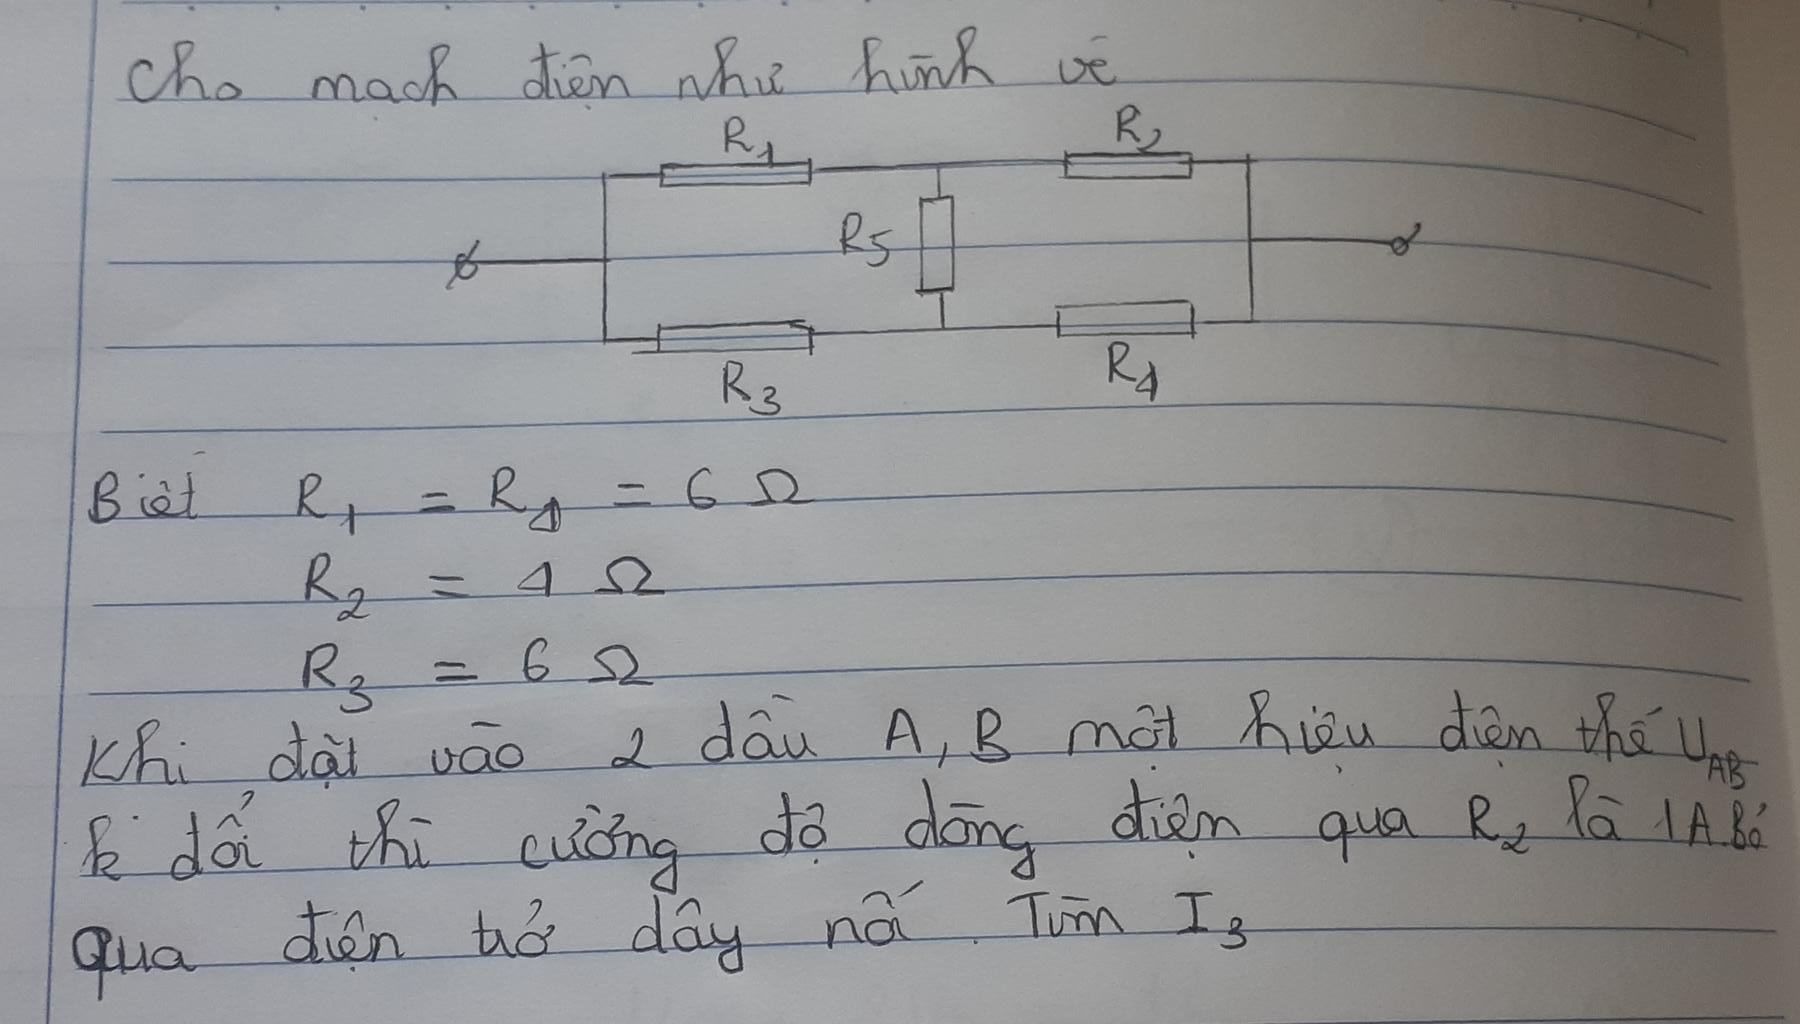 Cho mạch điện như hình vẽ
R1 R2
R5
R3 R4
Biết R1 = R4 = 6 Ω
R2 = 1 Ω
R3 = 6 Ω
Khi đặt vào 2 đầu A, B một hiệu điện thế UAB
k đổi thì cường độ dòng điện qua R2 là 1A. Bỏ
qua điện trở dây nối. Tìm I3